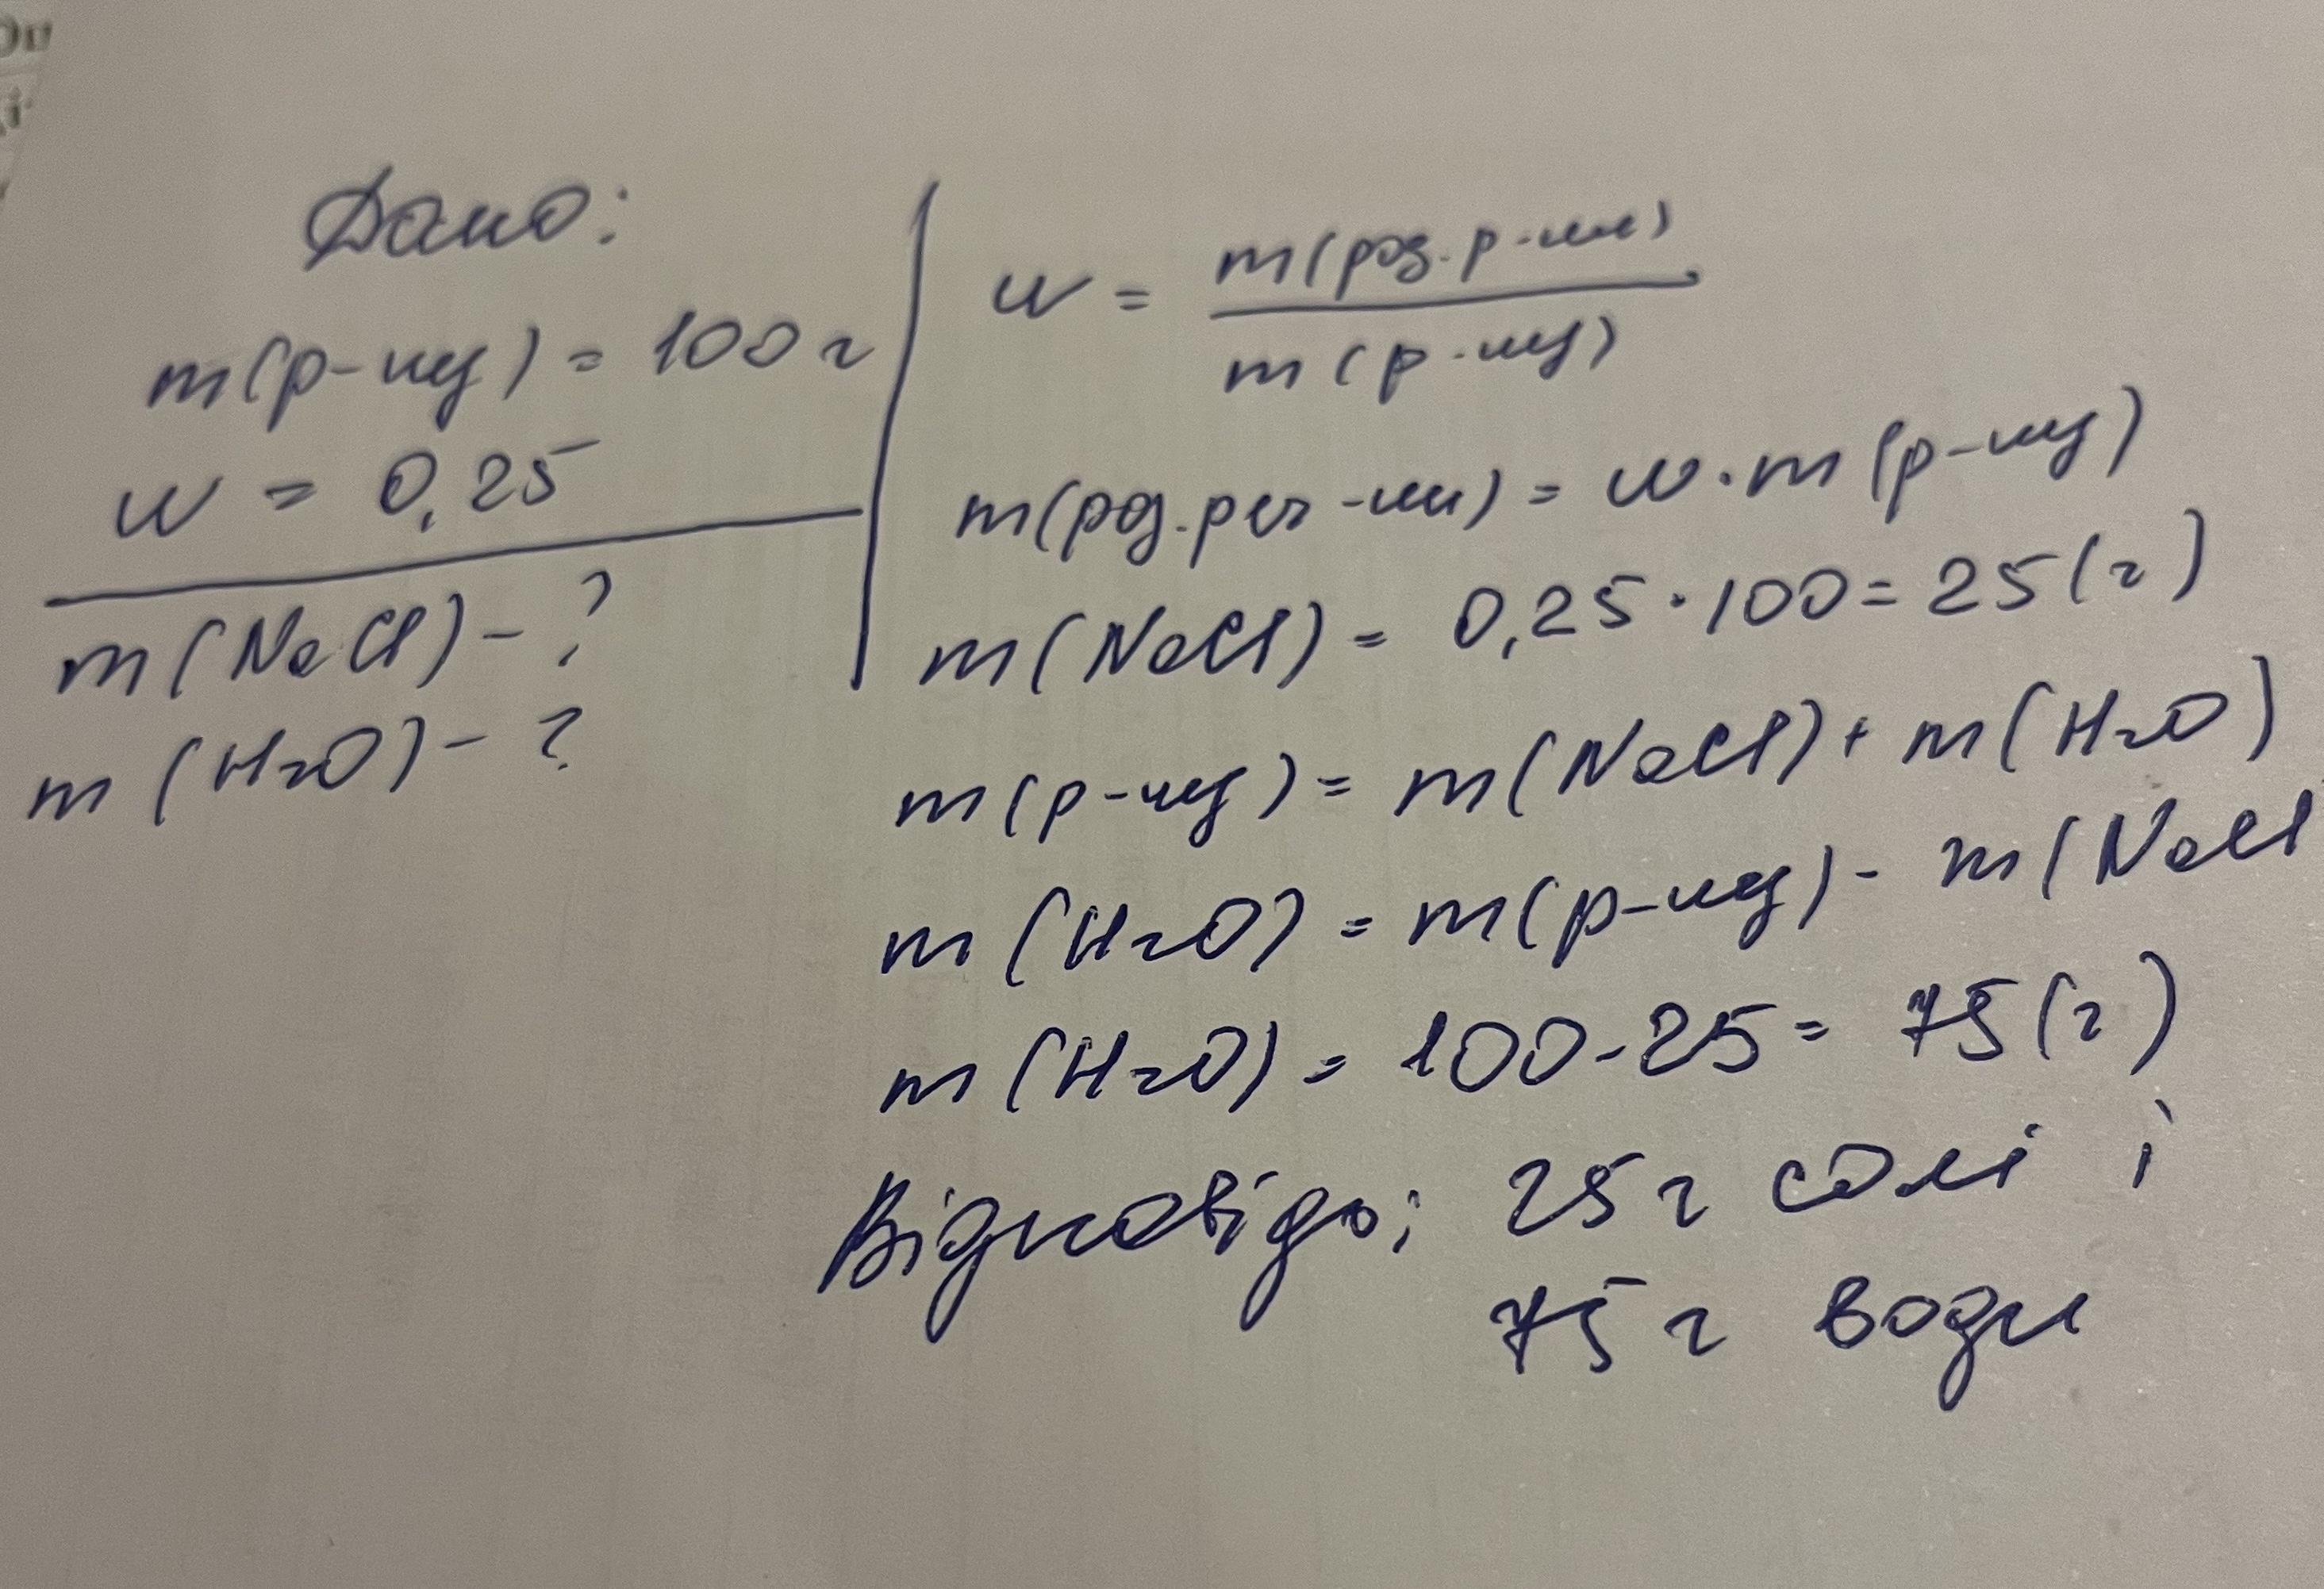 Дано:
m(р-ну) = 100 г
w = 0,25
m(NaCl) - ?
m(H2O) - ?
w = m(роз. р-ни)
m(р-ну)
m(роз. реч-ни) = w · m(р-ну)
m(NaCl) = 0,25 · 100 = 25(г)
m(р-ну) = m(NaCl) + m(H2O)
m(H2O) = m(р-ну) - m(NaCl
m(H2O) = 100 - 25 = 75(г)
Відповідь: 25 г солі і
75 г води